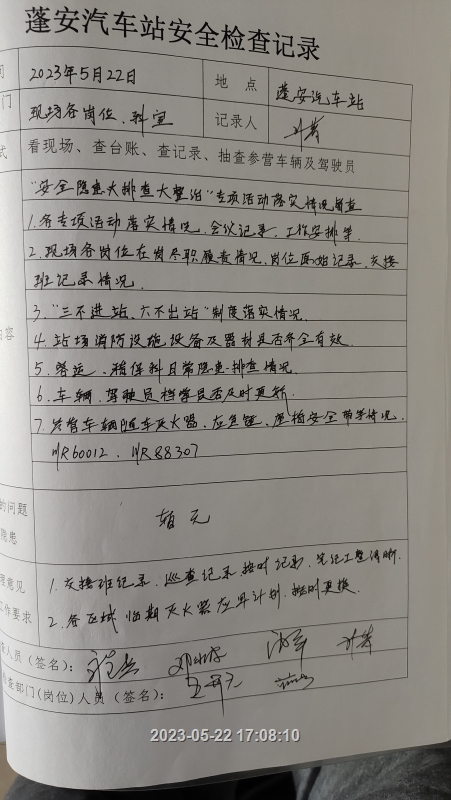 蓬安汽车站安全检查记录
间 2023年5月22日 地 点 蓬安汽车站
门 现场各岗位、科室 记录人
式 看现场、查台账、查记录、抽查参营车辆及驾驶员
"安全隐患大排查大整治"专项活动落实情况
1.各专项活动落实情况、会议记录、工作安排等.
2.现场各岗位在岗尽职履责情况、岗位原始记录、交接
班记录情况.
3."三不进站、六不出站"制度落实情况.
4.站场消防设施设备及器材是否齐全有效.
内容
5.客运、稽保科日常隐患排查情况.
6.车辆、驾驶员档案是否及时更新.
7.参营车辆随车灭火器、应急锤、座椅安全带等情况.
川R60012、川R88307
的问题
隐患
暂无
理意见
工作要求
1.交接班记录、巡查记录按时记录,字迹工整清晰.
2.各区域临期灭火器应早计划、按时更换.
查人员(签名):
查部门(岗位)人员(签名):
2023-05-22 17:08:10